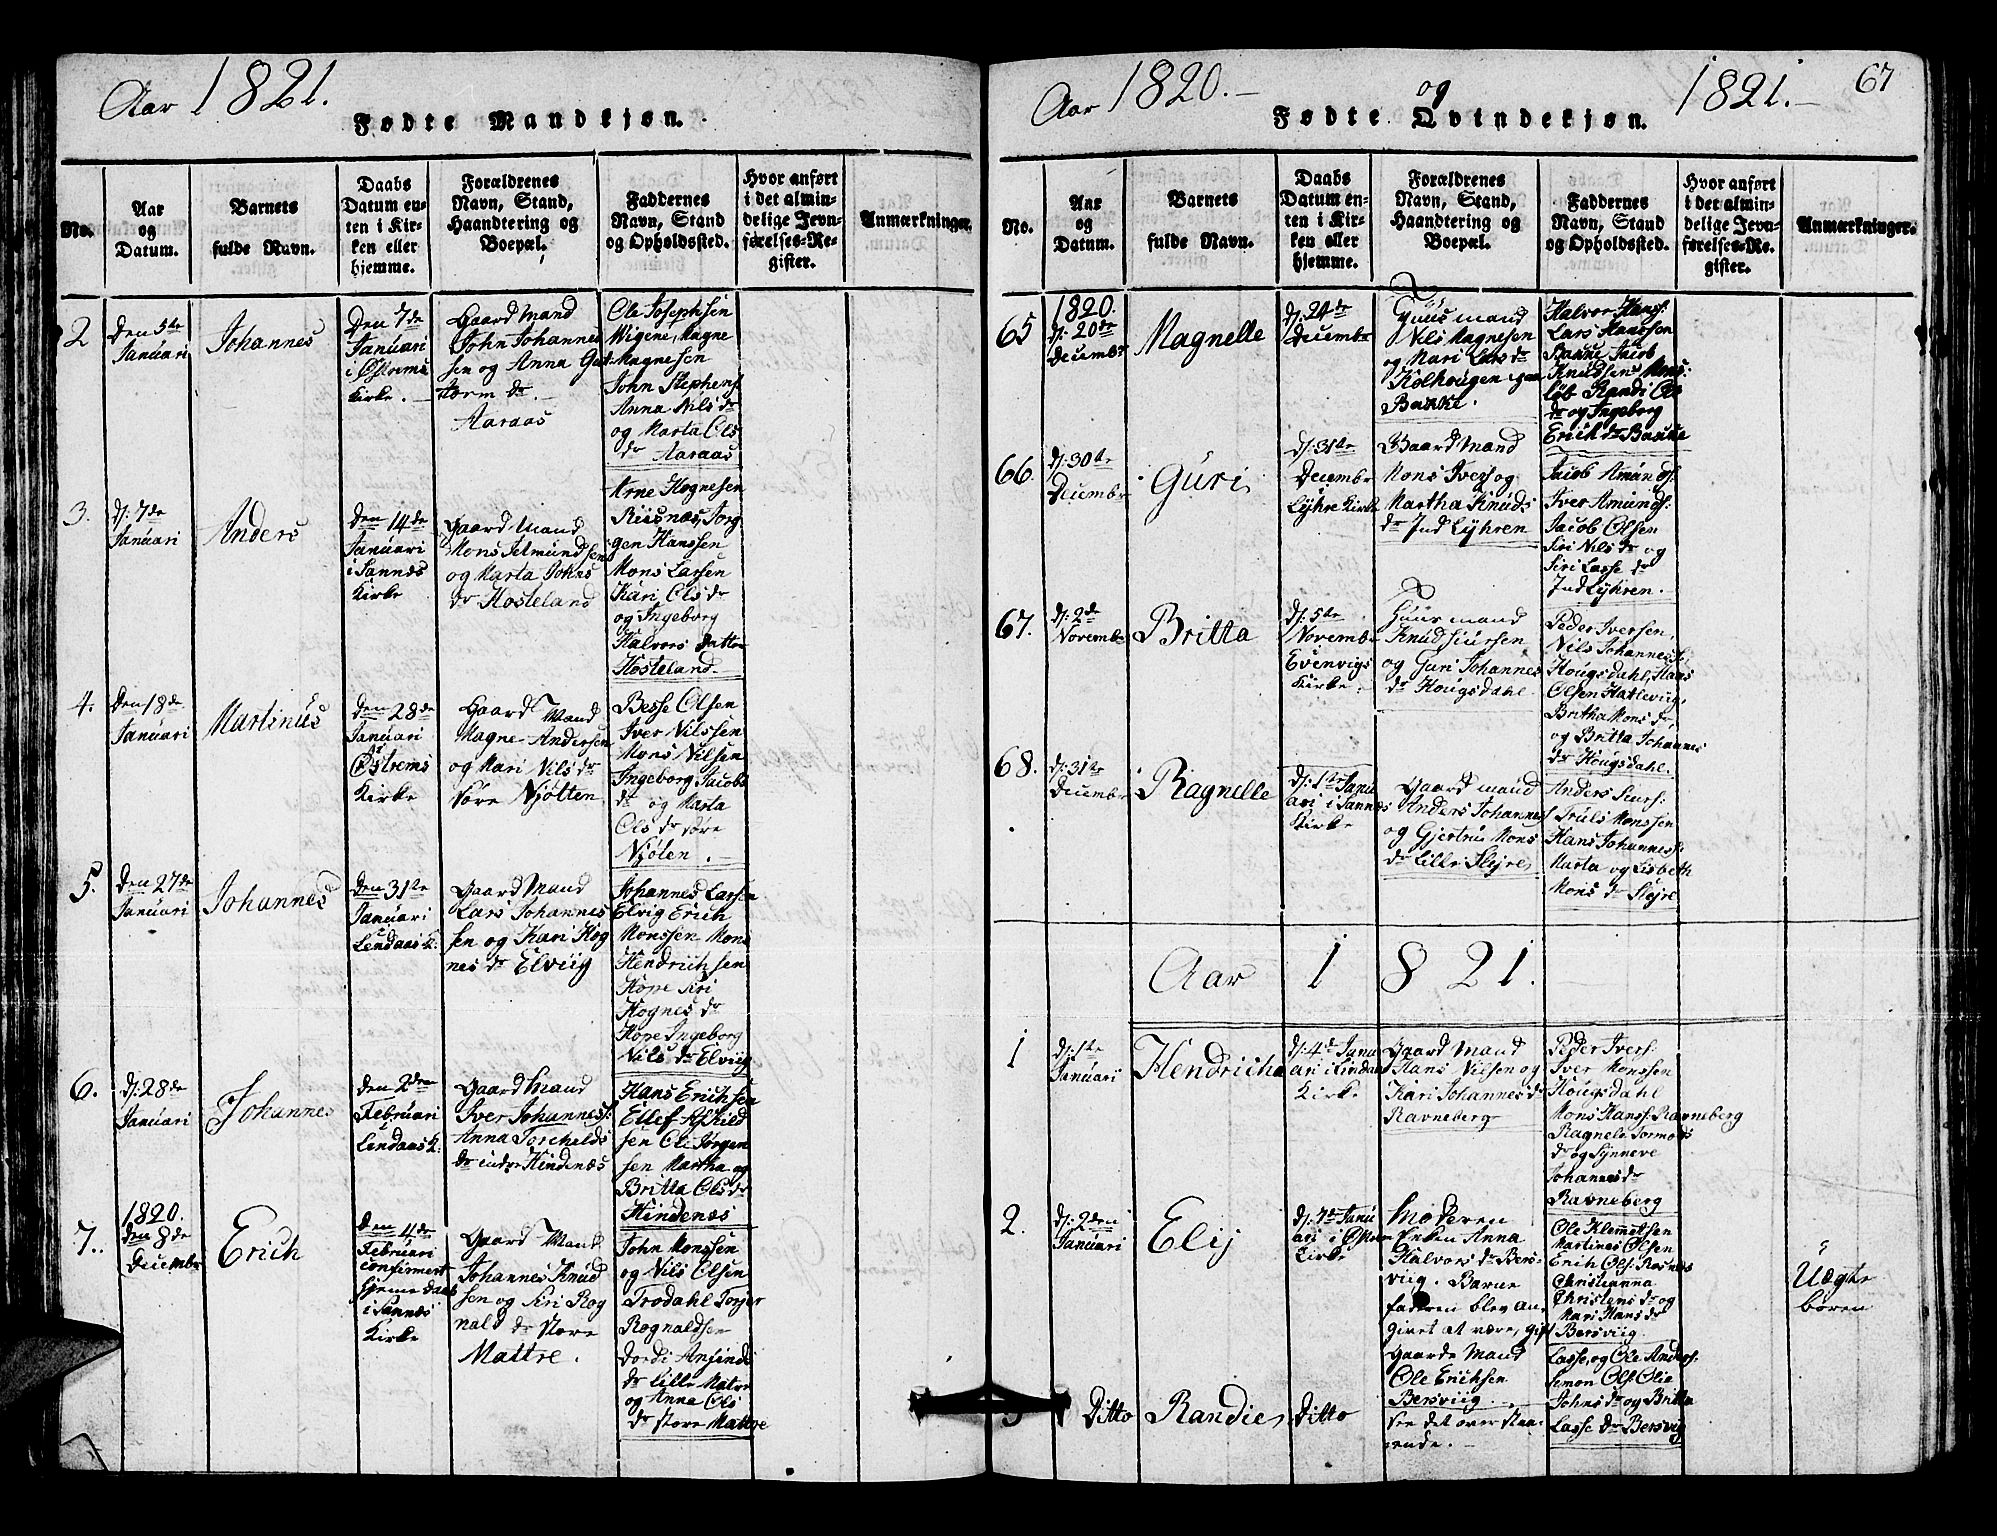 Aar 1821.
Fødte Mandkjøn.
No.
Aar
og
Datum.
Barnets
fulde Navn.
Daabs
Datum en-
ten i Kir-
ken eller
hjemme.
Forældrenes
Navn, Stand,
Haandtering og
Boepæl.
Faddernes
Navn, Stand
og Opholdssted.
Hvor anført
i det almin-
delige Jevn-
førelses-Re-
gister.
Anmærkninger.
2
Den 5te
Januari
Johannes
Den 7de
Januari
i Østrems
Kirke.
Gaard Mand
John Johannes
sen og Anna Gut
torm dr.
Aaraas
Ole Josephsen
Magne
Magnesen
John Stephens
Anna Nils dr
og Marta Ols
dr Aaraas
3.
d: 7de
Januari
Anders
Den 14de
Januari
i Sannes
Kirke
Gaard Mand
Mons Selmundsen
og Marta Johns
dr Hosteland
Arne Hognesen
Riisnæs, Jørg
gen Hanssen
Mons Larsen
Kari Ols dr
og Ingeborg
Halvors datter
Hosteland
4.
Den 18de
Januari
Martinus
Den 28de
Januari
Østrems
Kirke
Gaard Mand
Magne Andersen
og Mari Nils dr
Søre Njøtten
Besse Olsen
Iver Nilssen
Mons Nilsen
Ingeborg Jacobs
dr og Marta
Ols dr Søre
Njøten.
5.
Den 27de
Januari
Johannes
Den 31te
Januari
Lendaas K:
Gaard Mand
Lars Johannes
sen og Kari Hog
nes dr Elviig
Johannes Larsen
Elvig Erich
Monssen Mons
Hendrichsen
Hope Siri
Hognes dr
Hope Ingeborg
Nils dr Elviig
6.
d: 28de
Januari
Johannes
den 2den
Februari
Lendaas K:
Gaard Mand
Iver Johannes:
Anna Torchelds
dr indre Hindenæs
Hans Erichsen
Ellef Askild
sen Ole Jørgen
sen Martha og
Britta Ols dr
Hindenæs
7.
1820.
den 8de
December
Erich
den 4de
Februari
confirmert
hjeme daab
i Sannæs
Kirke
Gaard Mand
Johannes Knud
sen og Siri Rog
nald dr store
Mattre.
John Monssen
og Nils Olsen
Trodahl Torjer
Rognaldsen
Dordi Ansinds
dr lille Matre
og Anna Ols
dr store Mattre
Aar 1820. og 1821. 67
Fødte Qvindekjøn.
No.
Aar
og
Datum.
Barnets
fulde Navn.
Daabs
Datum en-
ten i Kir-
ken eller
hjemme.
Forældrenes
Navn, Stand,
Haandtering og
Boepæl.
Faddernes
Navn, Stand
og Opholdssted.
Hvor anført
i det almin-
delige Jevn-
førelses-Re-
gister.
Anmærkninger.
65
1820.
d: 20de
December
Magnelle
d: 24de
December
Huusmand
Nils Magnesen
og Mari Lars dr
Kolhougen
Bakke.
Halvor Hans:
Lars Haavsen
Bakke Jacob
Knudsen Mons:
Randi Ols
dr og Ingeborg
Erich dr Bakke
66
d: 30te
December
Guri
d: 31te
December
Lyhre Kirke
Gaard Mand
Mons Ivers og
Martha Knuds
dr Ind Lyhren
Jacob Amunds:
Iver Amunds:
Jacob Olsen
Siri Nils dr og
Siri Lasse dr
Ind Lyhren.
67.
d: 2de
November
Britta
d: 5te
November
Evenvigs
Kirke.
Huusmand
Knud Siursen
og Guri Johannes
dr Hougsdahl.
Peder Iversen,
Nils Johannes:
Hougsdahl, Hans
Olsen Hatleviig,
Britha Mons dr
og Britta Johannes
dr Hougsdahl.
68.
d: 31te
December
Ragnelle
d: 1te Janu
ari i Sannes
Kirke
Gaard mand
Anders Johannes
og Gjertrue Mons
dr Lille Slejre
Anders Siurs:
Truls Monssen
Hans Johannes:
Marta og Lisbeth
Mons dr Slejre
Aar 1821.
1
d: 1te
Januari
Hendricha
d: 4de Janu
ari i Lindaas
Kirke
Gaard Mand
Hans Nilsen og
Kari Johannes dr
Ravneberg
Peder Ivers:
Iver Monssen
Hougsdahl
Mons Hans: Ravneberg
Ragnele Tormods
dr og Synneve
Johannes dr
Ravneberg
2.
d: 2den
Januari
Elij
d: 7de Janu
ari i Østrem
Kirke
Moderen
Enken Anna
Halvors dr Bers
viig. Barne
faderen blev an
givet at være, gift
Gaarde Mand
Ole Erichsen
Bersviig.
Ole Klemetsen
Martines Olsen
Erich Ols: Rosnes
Christianna
Christens dr og
Mari Hans dr
Bersviig.
Uægte
børen
3
Ditto
Randie
Ditto
See det over staa
ende.
Lasse, og Ole Anders:
Simon Ols: Olia
Johns dr og Britta
Lasse dr Bersvig